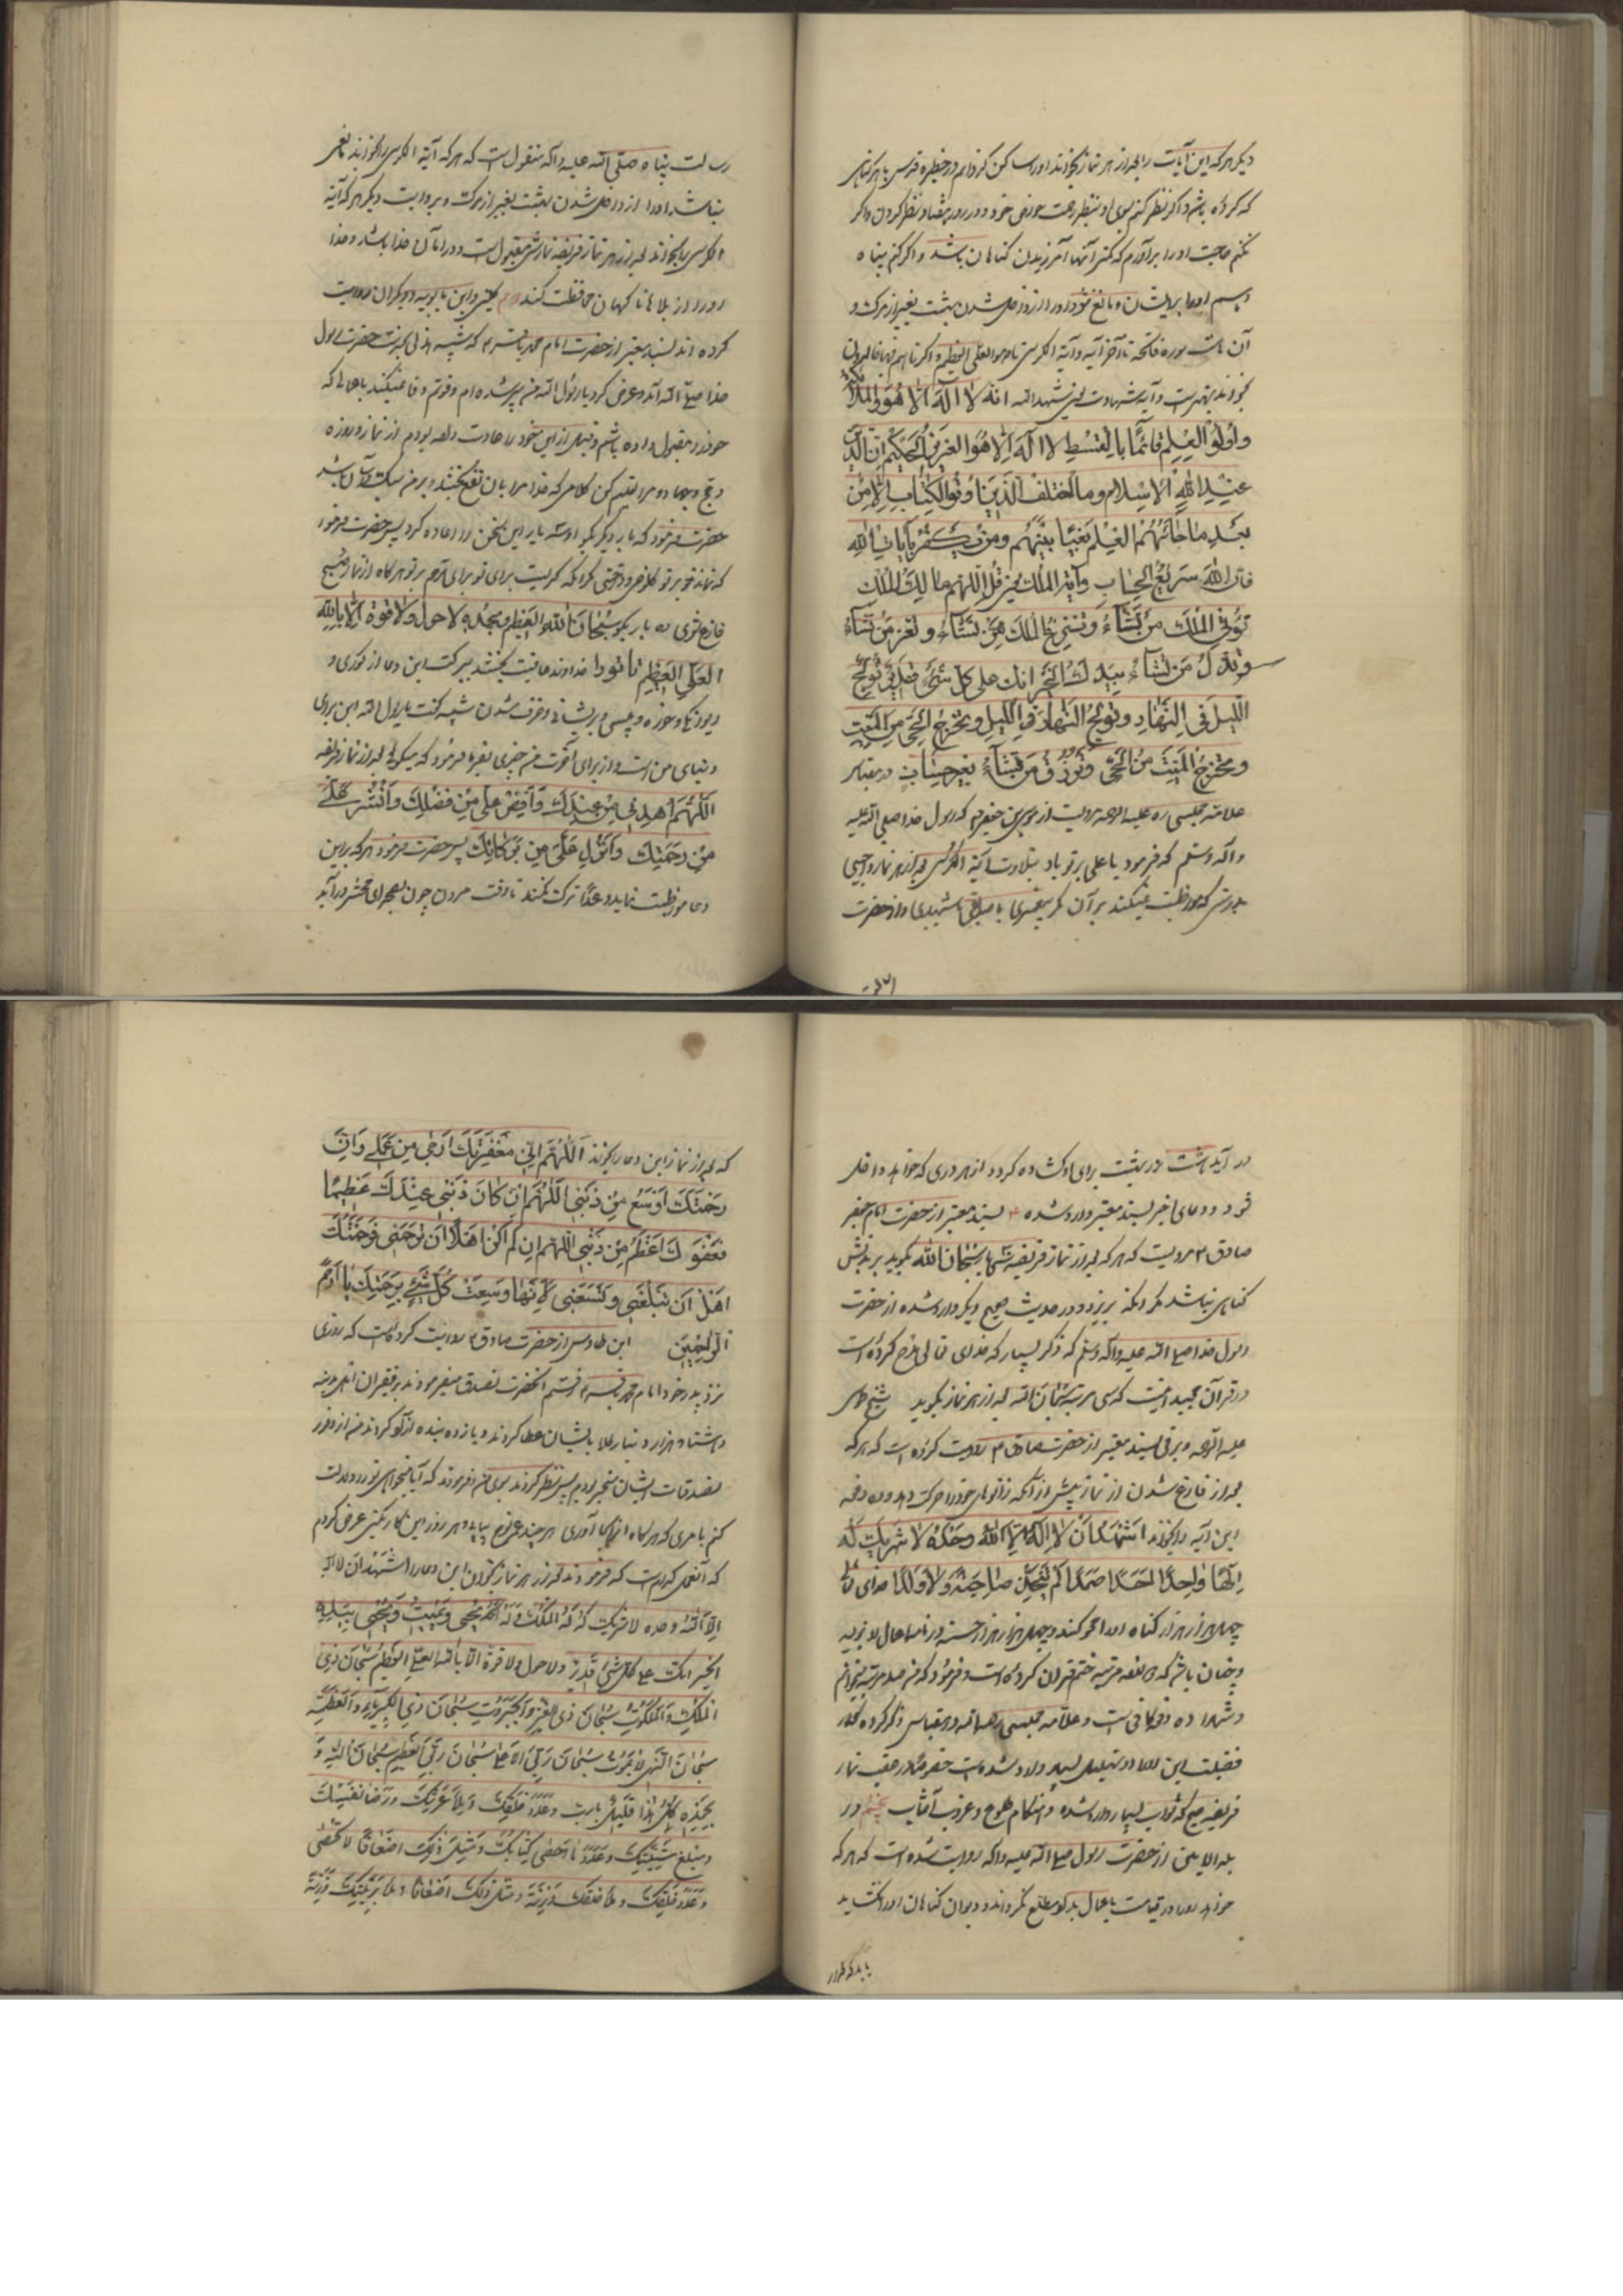 دیگر هرکه این آیات را بعد از هر نماز بخواند او را ساکن گردانم در حظیره قدس با هر گناهی
که کرده باشد و اگر نکنم نظر کنم بسوی او بنظر رحمت خود در هر روز هفتاد نظر و اگر
نکنم حاجت او را برآورم که کمتر آنها آمرزیدن گناهان باشد و اگر نکنم پناه
دهم او را و مانع نشود او را از داخل شدن بهشت بغیر از مرگ و
آن آیات سوره فاتحه تا آخر آیه و آیة الکرسی تا و هو العلی العظیم و اگر تا هم فیها خالدون
بخواند بهتر است و آیه شهادت یعنی شهد الله انه لا اله الا هو والملائکه
واولوا العلم قائما بالقسط لا اله الا هو العزیز الحکیم ان الدین
عند الله الاسلام وما اختلف الذین اوتوا الکتاب الا من
بعد ما جائهم العلم بغیا بینهم ومن یکفر بآیات الله
فان الله سریع الحساب وآیة الملک یعنی قل اللهم مالک الملک
تؤتی الملک من تشآء وتنزع الملک ممن تشآء وتعز من تشآء
وتذل من تشآء بیدک الخیر انک علی کل شیء قدیر تولج
اللیل فی النهار وتولج النهار فی اللیل وتخرج الحی من المیت
وتخرج المیت من الحی وترزق من تشآء بغیر حساب در مقباس
علامه مجلسی ره علیه الرحمه مرویست از موسی بن جعفر که رسول خدا صلی الله علیه
وآله وسلم که فرمود یا علی بر تو باد بتلاوت آیة الکرسی بعد از هر نماز واجبی
بدرستی که مواظبت نمیکند بر آن مگر پیغمبری یا صدیقی یا شهیدی و از حضرت
رسالت پناه صلی الله علیه وآله منقولست که هرکه آیة الکرسی را بخواند مانعی
نباشد او را از داخل شدن بهشت بغیر از مرگ و بروایت دیگر هرکه آیة
الکرسی را بخواند بعد از هر نماز فریضه نمازش مقبولست و در امان خدا باشد و خدا
او را از بلاها و گناهان محافظت کند کلینی و ابن بابویه و دیگران روایت
کرده اند بسند معتبر از حضرت امام محمد باقر که شیبه هذلی بخدمت حضرت رسول
خدا صلی الله آمد و عرض کرد یا رسول الله من پیر شده ام و قوتم وفا نمیکند باعمالی که
خود را بآن عادت داده بودم از نماز و روزه
و حج و جهاد مرا تعلیم کن کلامی که خدا مرا بآن نفع بخشد و بر من سبک و آسان باشد
حضرت فرمود که بار دیگر بگو او سه بار این سخن را اعاده کرد پس حضرت فرمود
که نماند در دور تو کلوخی و درختی مگر آنکه گریست برای تو برای ترحم بر تو هرگاه از نماز صبح
فارغ شوی ده بار بگو سبحان الله العظیم وبحمده ولا حول ولا قوة الا بالله
العلی العظیم تا تو را خداوند عافیت بخشد ببرکت این دعا از کوری و
دیوانگی و خوره و پیسی و پریشانی و خرف شدن شیبه گفت یا رسول الله این برای
دنیای من است از برای آخرت من چیزی بفرما فرمود که میگوئی بعد از نماز فریضه
اللهم اهدنی من عندک وافض علی من فضلک وانشر علی
من رحمتک وانزل علی من برکاتک پس حضرت فرمود هرکه بر این
دعا مواظبت نماید و عمدا ترک نکند تا وقت مردن چون بصحرای محشر درآید
در آید هشت در بهشت برای او گشاده گردد از هر دری که خواهد داخل
شود و دعای اخیر بسند معتبر وارد شده بسند معتبر از حضرت امام جعفر
صادق مرویست که هرکه بعد از نماز فریضه سی بار سبحان الله بگوید بر بدنش
گناهی نباشد مگر آنکه بریزد و در حدیث صحیح دیگر وارد شده از حضرت
رسول خدا صلی الله علیه وآله وسلم که ذکر بسیار که خدای تعالی مدح کرده است
در قرآن مجید اینست که سی مرتبه سبحان الله بعد از هر نماز بگوید شیخ طوسی
علیه الرحمه و برقی بسند معتبر از حضرت صادق روایت کرده است که هرکه
بعد از فارغ شدن از نماز پیش از آنکه زانوهای خود را حرکت دهد ده دفعه
این آیه را بخواند اشهد ان لا اله الا الله وحده لا شریک له
الها واحدا احدا صمدا لم یتخذ صاحبة ولا ولدا خدای تعالی
چهل هزار هزار گناه او را محو کند و چهل هزار هزار حسنه در نامه اعمال او نویسد
و چنان باشد که دوازده مرتبه ختم قرآن کرده است و فرمود که من صد مرتبه میخوانم
و شما را ده دفعه کافیست و علامه مجلسی رحمه الله در مقباس ذکر کرده که در
فضیلت این تهلیل بسیار وارد شده است خصوصا در تعقیب نماز
فریضه صبح که ثواب بسیار وارد شده و هنگام طلوع و غروب آفتاب در
بلد الامین از حضرت رسول صلی الله علیه وآله روایت شده است که هرکه
خواهد خدا او را در قیامت باعمال بد او مطلع نگرداند و دیوان گناهان او را نگشاید
باید که هر
که بعد از نماز این دعا را بخواند اللهم ان مغفرتک ارجی من عملی وان
رحمتک اوسع من ذنبی اللهم ان کان ذنبی عندک عظیما
فعفوک اعظم من ذنبی اللهم ان لم اکن اهلا ان ترحمنی فرحمتک
اهل ان تبلغنی وتسعنی لانها وسعت کل شیء برحمتک یا ارحم
الراحمین ابن طاوس از حضرت صادق روایت کرده است که روزی
نزد پدر خود امام محمد باقر رفتم آنحضرت تصدق میفرمودند بر فقیران اهل مدینه
و هشتاد هزار دینار طلا بایشان عطا کردند و یازده بنده آزاد کردند من از وفور
تصدقات ایشان متحیر بودم پس نظر کردند بسوی من فرمودند که آیا میخواهی تو را دلالت
کنم بامری که هرگاه آن را بجا آوری هر چند عمر نوح بیابی و هر روز این کار بکنی عرض کردم
که آن عمل کدام است که فرمودند بعد از هر نماز بخوان این دعا را اشهد ان لا اله
الا الله وحده لا شریک له له الملک وله الحمد یحیی ویمیت ویمیت ویحیی بیده
الخیر انک علی کل شیء قدیر ولا حول ولا قوة الا بالله العلی العظیم سبحان ذی
الملک والملکوت سبحان ذی العز والجبروت سبحان ذی الکبریآء والعظمة
سبحان الحی لا یموت سبحان ربی الاعلی سبحان ربی العظیم سبحان الله و
بحمده کل هذا قلیل یا رب وعدد خلقک وملأ عرشک ورضا نفسک
ومبلغ مشیتک وعدد ما احصی کتابک ومثل ذلک اضعافا لا تحصی
وعدد خلقک وملأ خلقک وزنة ومثل ذلک اضعافا وعدد بریتک وزنة